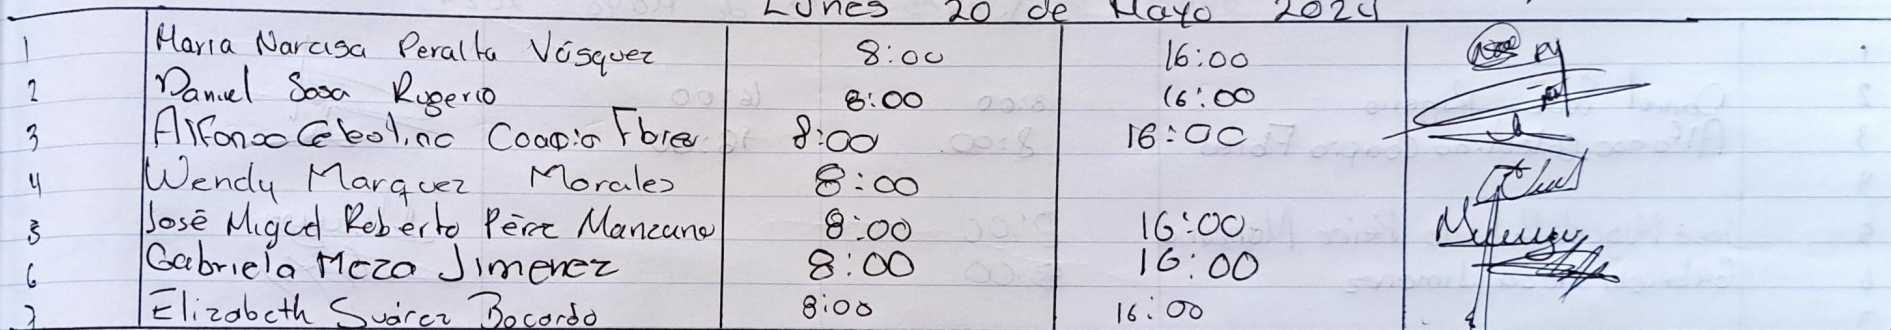 Lunes 20 de Mayo 2024
1 Maria Narcisa Peralta Vásquez 8:00 16:00
2 Daniel Sosa Rugerio 8:00 16:00
3 Alfonso Celestino Coapio Flores 8:00 16:00
4 Wendy Marquez Morales 8:00
5 José Miguel Roberto Pérez Manzano 8:00 16:00
6 Gabriela Meza Jimenez 8:00 16:00
7 Elizabeth Suárez Bocardo 8:00 16:00